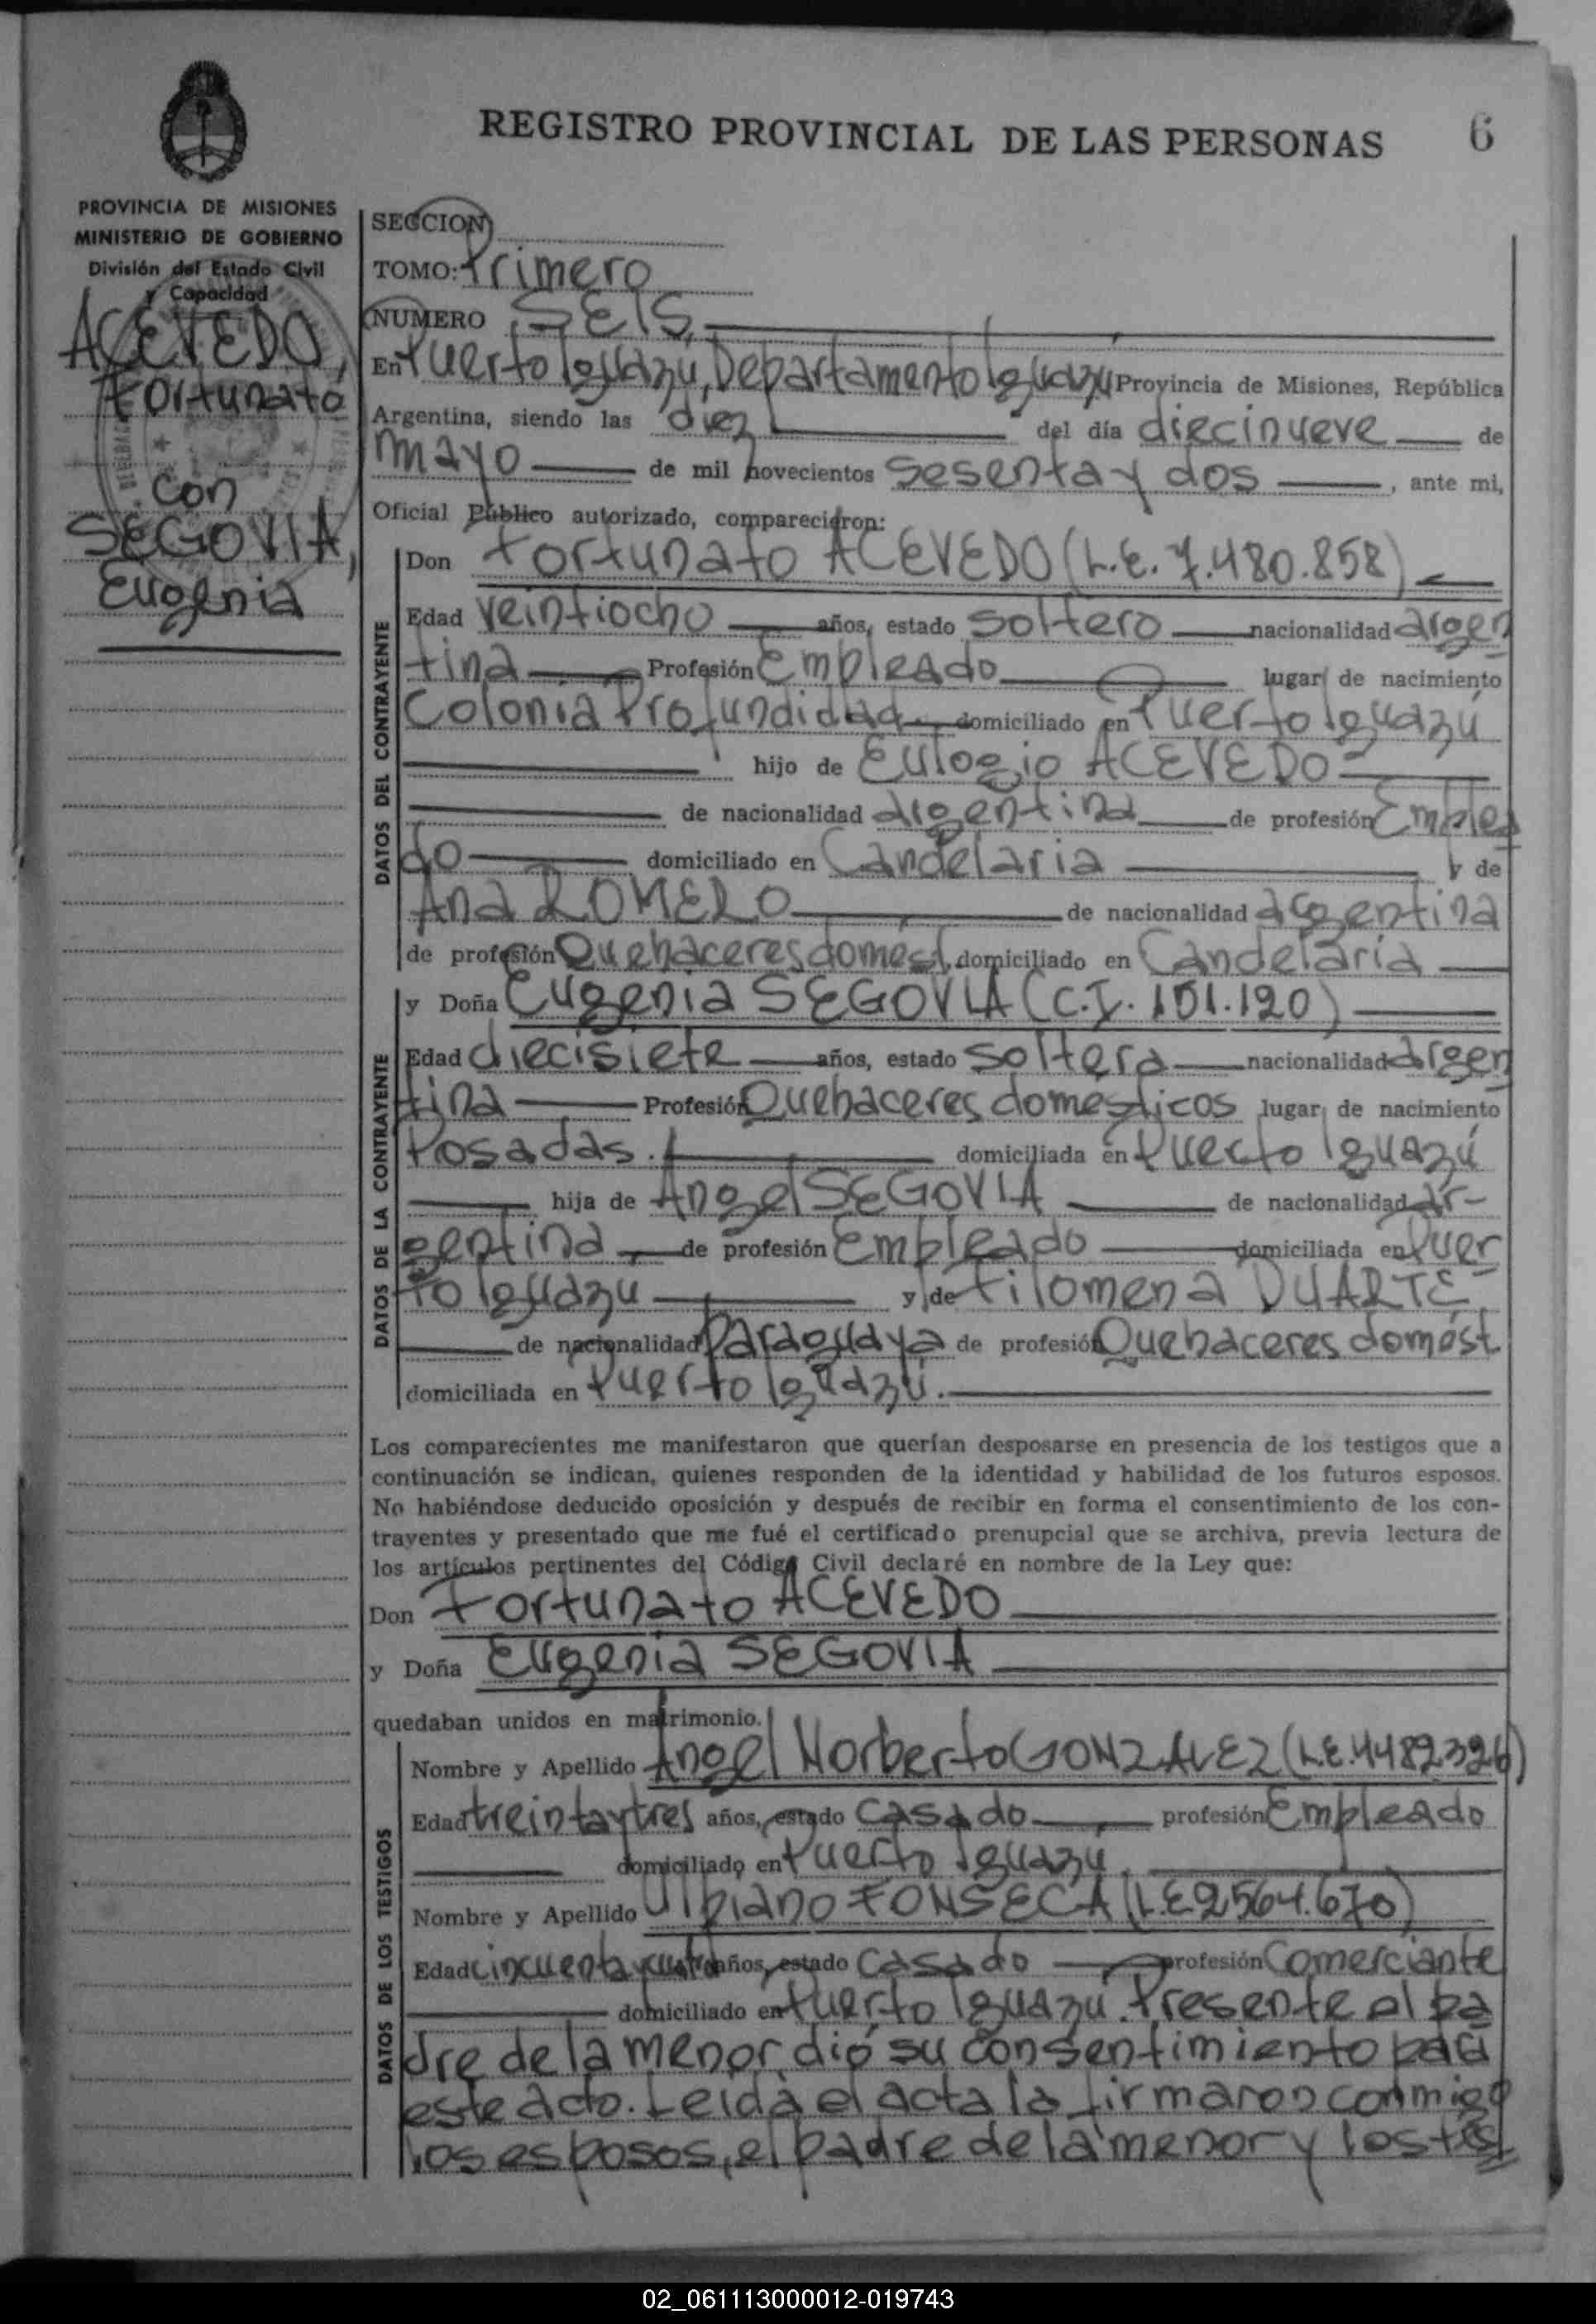 REGISTRO PROVINCIAL DE LAS PERSONAS 6
PROVINCIA DE MISIONES
MINISTERIO DE GOBIERNO
División del Estado Civil
y Capacidad
ACEVEDO,
Fortunato
con
SEGOVIA,
Eugenia
SECCION
TOMO: Primero
NUMERO SEIS,
En Puerto Iguazú, Departamento Iguazú Provincia de Misiones, República
Argentina, siendo las diez del día diecinueve de
mayo de mil novecientos sesenta y dos, ante mi,
Oficial Público autorizado, comparecieron:
DATOS DEL CONTRAYENTE
Don Fortunato ACEVEDO (L.E. 7.480.858)
Edad veintiocho años, estado soltero nacionalidad argen
tina Profesión Empleado lugar de nacimiento
Colonia Profundidad domiciliado en Puerto Iguazú
hijo de Eulogio ACEVEDO
de nacionalidad argentina de profesión Emplea
do domiciliado en Candelaria y de
Ana ROMERO de nacionalidad argentina
de profesión Quehaceres domést. domiciliado en Candelaria
DATOS DE LA CONTRAYENTE
y Doña Eugenia SEGOVIA (C.I. 151.120)
Edad diecisiete años, estado soltera nacionalidad argen
tina Profesión Quehaceres domésticos lugar de nacimiento
Posadas. domiciliada en Puerto Iguazú
hija de Angel SEGOVIA de nacionalidad ar-
gentina, de profesión Empleado domiciliada en Puer
to Iguazú y de Filomena DUARTE
de nacionalidad Paraguaya de profesión Quehaceres domést.
domiciliada en Puerto Iguazú.
Los comparecientes me manifestaron que querían desposarse en presencia de los testigos que a
continuación se indican, quienes responden de la identidad y habilidad de los futuros esposos.
No habiéndose deducido oposición y después de recibir en forma el consentimiento de los con-
trayentes y presentado que me fué el certificado prenupcial que se archiva, previa lectura de
los artículos pertinentes del Código Civil declaré en nombre de la Ley que:
Don Fortunato ACEVEDO
y Doña Eugenia SEGOVIA
quedaban unidos en matrimonio.
DATOS DE LOS TESTIGOS
Nombre y Apellido Angel Norberto GONZALEZ (L.E. 4482326)
Edad treinta y tres años, estado casado profesión Empleado
domiciliado en Puerto Iguazú.
Nombre y Apellido Ulpiano FONSECA (L.E 2564.670)
Edad cincuenta y cuatro años, estado casado profesión Comerciante
domiciliado en Puerto Iguazú. Presente el pa
dre de la menor, dió su consentimiento para
este acto. Leida el acta la firmaron conmigo
los esposos, el padre de la menor y los tes
02_061113000012-019743